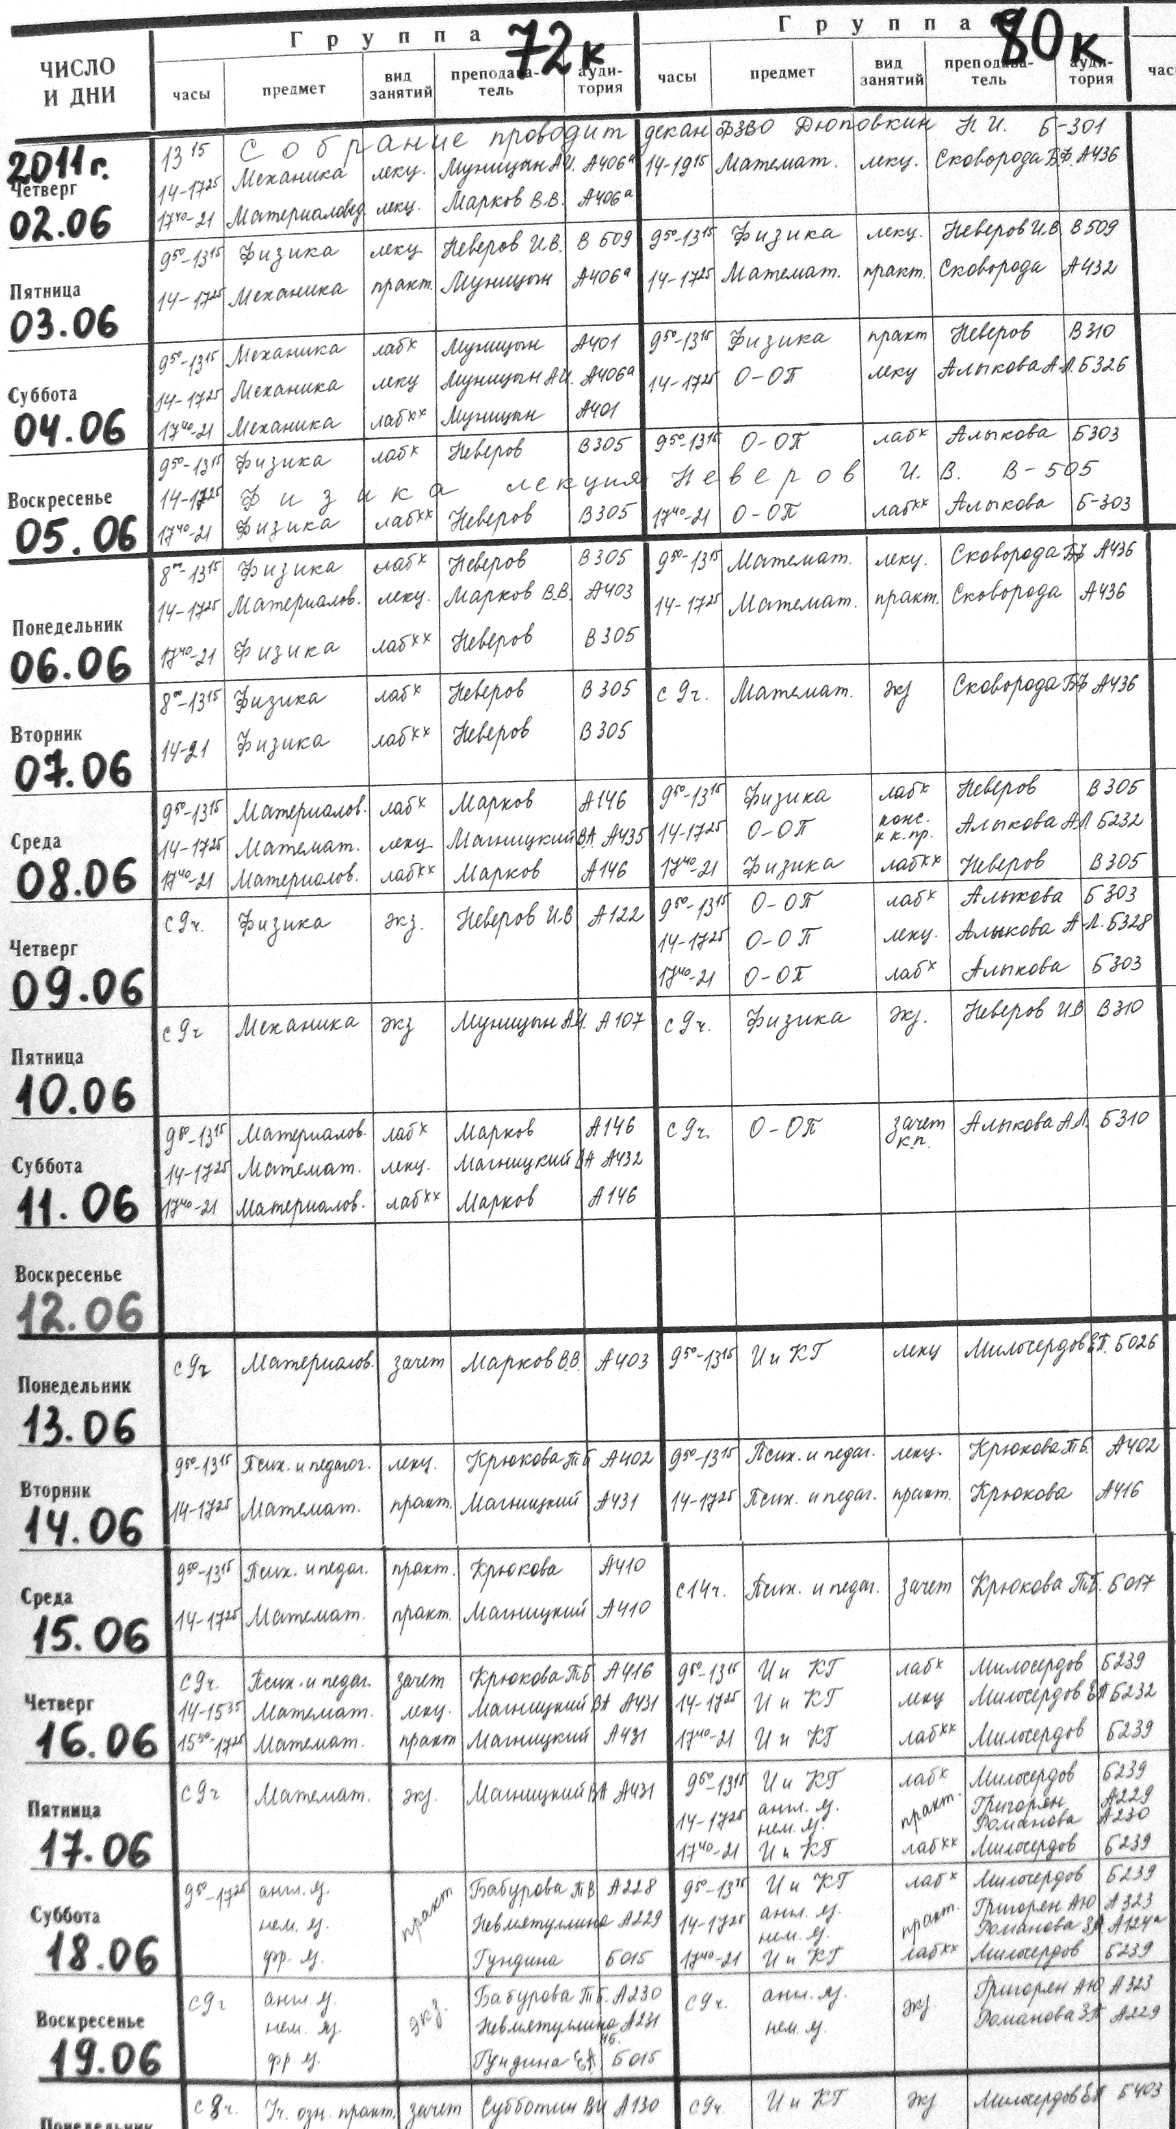 Группа 72к Группа 80к
ЧИСЛО И ДНИ часы предмет вид занятий преподаватель аудитория часы предмет вид занятий преподаватель аудитория час
2011г.
13 15 Собрание проводит декан ФЗВО Дюповкин Н.И. Б-301
Четверг 02.06
14-17 25 Механика лекц. Муницын А.И. А406а 14-19 15 Математ. лекц. Сковорода Б.Ф. А436
17 40-21 Материаловед лекц. Марков В.В. А406а
Пятница 03.06
9 50-13 15 Физика лекц Неверов И.В. В509 9 50-13 15 Физика лекц. Неверов И.В. В509
14-17 25 Механика практ. Муницын А406а 14-17 25 Математ. практ. Сковорода А432
Суббота 04.06
9 50-13 15 Механика лабх Муницын А401 9 50-13 15 Физика практ Неверов В310
14-17 25 Механика лекц Муницын А.И. А406а 14-17 25 О-ОП лекц Алыкова А.Л. Б326
17 40-21 Механика лабхх Муницын А401
Воскресенье 05.06
9 50-13 15 Физика лабх Неверов В305 9 50-13 15 О-ОП лабх Алыкова Б303
14-17 25 Физика лекция Неверов И.В. В-505
17 40-21 Физика лабхх Неверов В305 17 40-21 О-ОП лабхх Алыкова Б-303
Понедельник 06.06
8 00-13 15 Физика лабх Неверов В305 9 50-13 15 Математ. лекц. Сковорода Б.Ф А436
14-17 25 Материалов. лекц. Марков В.В. А403 14-17 25 Математ. практ. Сковорода А436
17 40-21 Физика лабхх Неверов В305
Вторник 07.06
8 00-13 15 Физика лабх Неверов В305 с 9ч. Математ. экз Сковорода Б.Ф А436
14-21 Физика лабхх Неверов В305
Среда 08.06
9 50-13 15 Материалов. лабх Марков А146 9 50-13 15 Физика лабх Неверов В305
14-17 25 Математ. лекц Магницкий В.А. А435 14-17 25 О-ОП конс. к к.пр. Алыкова А.Л Б232
17 40-21 Материалов. лабхх Марков А146 17 40-21 Физика лабхх Неверов В305
Четверг 09.06
с 9ч. Физика экз. Неверов И.В А122 9 50-13 15 О-ОП лабх Алыкова Б303
14-17 25 О-ОП лекц. Алыкова А.Л. Б328
17 40-21 О-ОП лабх Алыкова Б303
Пятница 10.06
с 9ч Механика экз Муницын А.И. А107 с 9ч. Физика экз. Неверов И.В В310
Суббота 11.06
9 50-13 15 Материалов. лабх Марков А146 с 9ч. О-ОП зачет к.п. Алыкова А.Л. Б310
14-17 25 Математ. лекц. Магницкий В.А А432
17 40-21 Материалов. лабхх Марков А146
Воскресенье 12.06
Понедельник 13.06
с 9ч Материалов. зачет Марков В.В. А403 9 50-13 15 И и КГ лекц Милосердов Е.П. Б026
Вторник 14.06
9 50-13 15 Псих. и педагог. лекц. Крюкова Т.Б А402 9 50-13 15 Псих. и педаг. лекц. Крюкова Т.Б. А402
14-17 25 Математ. практ. Магницкий А431 14-17 25 Псих. и педаг. практ. Крюкова А416
Среда 15.06
9 50-13 15 Псих. и педаг. практ. Крюкова А410 с 14ч. Псих. и педаг. зачет Крюкова Т.Б. Б017
14-17 25 Математ. практ. Магницкий А410
Четверг 16.06
с 9ч. Псих. и педаг. зачет Крюкова Т.Б А416 9 50-13 15 И и КГ лабх Милосердов Б239
14-15 35 Математ. лекц. Магницкий В.А А431 14-17 25 И и КГ лекц Милосердов Е.П Б232
15 50-17 25 Математ. практ Магницкий А431 17 40-21 И и КГ лабхх Милосердов Б239
Пятница 17.06
с 9ч Математ. экз. Магницкий В.А А431 9 50-13 15 И и КГ лабх Милосердов Б239
14-17 25 англ. я. практ. Григорян А229
нем. я. Романова А230
17 40-21 И и КГ лабхх Милосердов Б239
Суббота 18.06
9 50-17 25 англ. я. практ Бабурова Т.В А228 9 50-13 15 И и КГ лабх Милосердов Б239
нем. я. Невмятуллина А229 14-17 25 англ. я. практ. Григорян А.Ю А323
нем. я. Романова З.П А124а
фр. я. Гундина Б015 17 40-21 И и КГ лабхх Милосердов Б239
Воскресенье 19.06
с 9ч англ. я. экз. Бабурова А230 с 9ч. англ. я. экз Григорян А.Ю А323
нем. я. Невмятуллина А231 нем. я. Романова З.П А229
фр я. Гундина Б015
Понедельник
с 8ч. Уч. озн. практ. зачет Субботин В.И А130 с 9ч. И и КГ экз Милосердов Е.П Б403